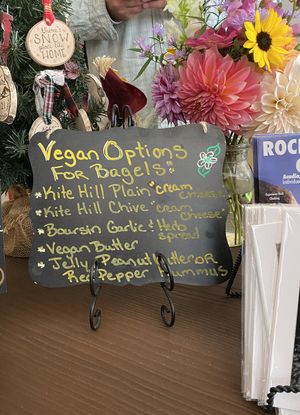 there's
SNOW
place like
HOME
Vegan Options
For Bagels:
* Kite Hill Plain "cream cheese"
* Kite Hill Chive "cream cheese"
* Boursin Garlic & Herb spread
* Vegan Butter
* Jelly, Peanut Butter OR
Red Pepper Hummus
ROC
Acadia,